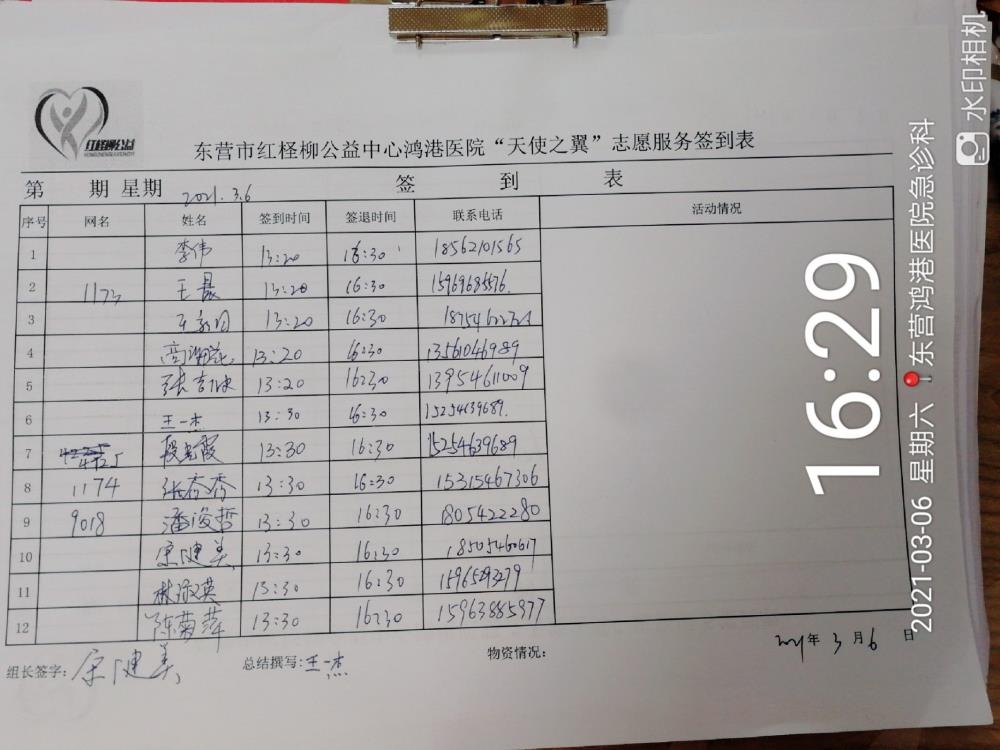 红柽柳公益
东营市红柽柳公益中心鸿港医院“天使之翼”志愿服务签到表
第 期 星期 2021.3.6 签 到 表
序号 网名 姓名 签到时间 签退时间 联系电话 活动情况
1 李伟 13:20 16:30 18562101565
2 1173 王晨 13:20 16:30 15969685576.
3 13:20 16:30
4 13:20 16:30 13561046989
5 13:20 16:30 13954611009
6 王一杰 13:30 16:30 15254639689.
7 4125 13:30 16:30 15254639689
8 1174 张杏秀 13:30 16:30 15315467306
9 9018 潘俊哲 13:30 16:30 1805422280
10 宗健美 13:30 16:30 18505460617
11 林淑英 13:30 16:30 15965293279
12 陈菊萍 13:30 16:30 15963885977
2021年 3 月 6 日
组长签字: 宗健美 总结撰写: 王一杰 物资情况:
16:29
2021-03-06 星期六 东营鸿港医院急诊科
水印相机